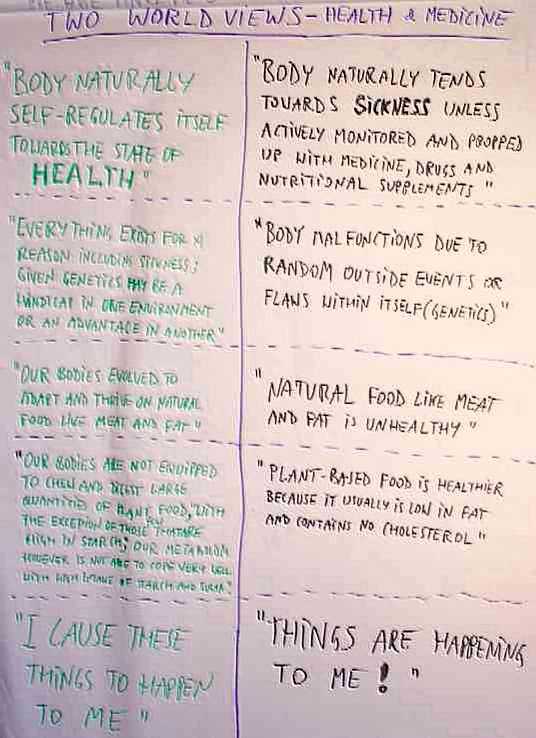 TWO WORLD VIEWS - HEALTH & MEDICINE
"BODY NATURALLY
SELF-REGULATES ITSELF
TOWARDS THE STATE OF
HEALTH"
"EVERYTHING EXISTS FOR A
REASON INCLUDING SICKNESS;
GIVEN GENETICS MAY BE A
HANDICAP IN ONE ENVIRONMENT
OR AN ADVANTAGE IN ANOTHER"
"OUR BODIES EVOLVED TO
ADAPT AND THRIVE ON NATURAL
FOOD LIKE MEAT AND FAT"
"OUR BODIES ARE NOT EQUIPPED
TO CHEW AND DIGEST LARGE
QUANTITIES OF PLANT FOOD, WITH
THE EXCEPTION OF THOSE THAT ARE
HIGH IN STARCH; OUR METABOLISM
HOWEVER IS NOT ABLE TO COPE VERY WELL
WITH HIGH INTAKE OF STARCH AND SUGAR"
"I CAUSE THESE
THINGS TO HAPPEN
TO ME"
"BODY NATURALLY TENDS
TOWARDS SICKNESS UNLESS
ACTIVELY MONITORED AND PROPPED
UP WITH MEDICINE, DRUGS AND
NUTRITIONAL SUPPLEMENTS"
"BODY MALFUNCTIONS DUE TO
RANDOM OUTSIDE EVENTS OR
FLAWS WITHIN ITSELF (GENETICS)"
"NATURAL FOOD LIKE MEAT
AND FAT IS UNHEALTHY"
"PLANT-BASED FOOD IS HEALTHIER
BECAUSE IT USUALLY IS LOW IN FAT
AND CONTAINS NO CHOLESTEROL"
"THINGS ARE HAPPENING
TO ME! "